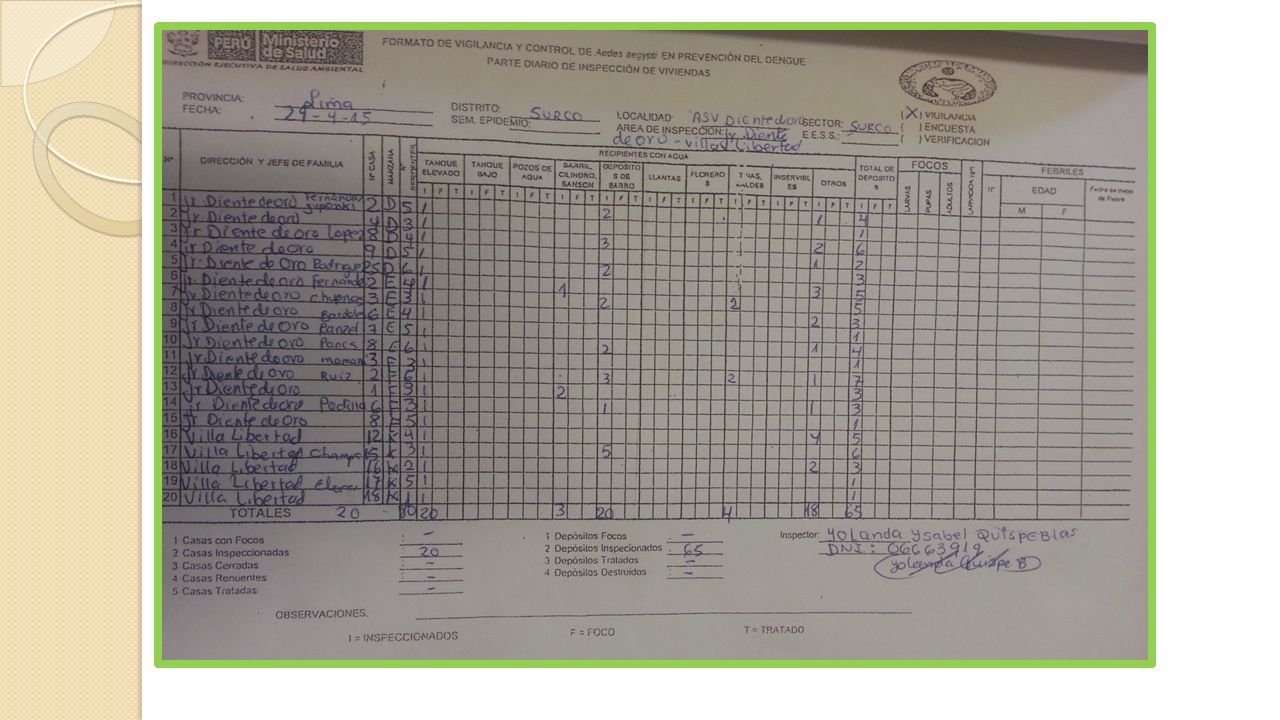 PERÚ Ministerio de Salud
DIRECCIÓN EJECUTIVA DE SALUD AMBIENTAL
FORMATO DE VIGILANCIA Y CONTROL DE Aedes aegypti EN PREVENCIÓN DEL DENGUE
PARTE DIARIO DE INSPECCIÓN DE VIVIENDAS
PROVINCIA: Lima
FECHA: 29-4-15
DISTRITO: SURCO
SEM. EPIDEMIO:
LOCALIDAD: ASV Diente doro
AREA DE INSPECCION: Jr. Diente de oro - Villa Libertad
SECTOR:
E.E.S.S.: SURCO
(X) VIGILANCIA
( ) ENCUESTA
( ) VERIFICACION
Nº DIRECCIÓN Y JEFE DE FAMILIA Nº CASA MANZANA Nº RESIDENTES
RECIPIENTES CON AGUA
TANQUE ELEVADO TANQUE BAJO POZOS DE AGUA BARRIL CILINDRO, SANSON DEPOSITOS DE BARRO LLANTAS FLOREROS TINAS, BALDES INSERVIBLES OTROS TOTAL DE DEPOSITOS
I F T I F T I F T I F T I F T I F T I F T I F T I F T I F T I F T
FOCOS
LARVAS PUPAS ADULTOS
FEBRILES
Nº EDAD
M F
1 Jr. Diente de oro Fernandez 2 D 5 1
2 Jr Diente de oro 4 D 3 1 2 1 4
3 Jr Diente de oro Lopez 8 D 4 1 1
4 jr Diente de oro 9 D 5 1 3 2 6
5 Jr. Diente de Oro Rodrigue 25 D 6 1 1 2
6 jr Diente de oro Fernande 2 E 4 1 2 3
7 Jr Diente de oro 3 E 3 1 1 3 5
8 Jr Diente de oro 6 E 4 1 2 2 5
9 Jr Diente de Oro 7 E 5 1 2 3
10 Jr Diente de oro 8 E 6 1 1
11 Jr Diente de oro maman 3 F 3 1 2 1 4
12 Jr Diente de oro Ruiz 2 F 6 1 1
13 Jr Diente de Oro 1 F 3 1 3 2 1 7
14 jr Diente de oro Padilla 6 F 3 1 2 3
15 Jr Diente de Oro 8 F 5 1 1 1 3
16 Villa Libertad 12 K 4 1 1
17 Villa Libertad 15 K 3 1 4 5
18 Villa Libertad 16 K 2 1 5 6
19 Villa Libertad 17 K 5 1 2 3
20 Villa Libertad 18 K 1 1 1
TOTALES 20 80 20 3 20 4 18 65
1 Casas con Focos : -
2 Casas Inspeccionadas : 20
3 Casas Cerradas : -
4 Casas Renuentes : -
5 Casas Tratadas : -
1 Depósitos Focos : -
2 Depósitos Inspecionados : 65
3 Depósitos Tratados : -
4 Depósitos Destruidos : -
Inspector: Yolanda Ysabel Quispe Blas
DNI: 06663919
Yolanda Quispe B
OBSERVACIONES.
I = INSPECCIONADOS
F = FOCO
T = TRATADO